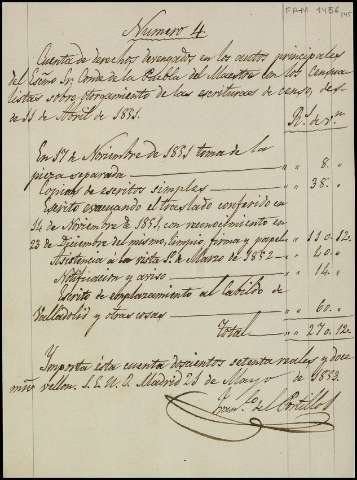 FAM 1456
Numero 4
Cuenta de derechos devengados en los autos principales
del Escmo Sr. Conde de la Puebla del Maestre con los censua
listas sobre otorgamiento de las escrituras de censo, des-
de 11 de Abril de 1851.
Rs. de vn
En 17 de Noviembre de 1851 toma de la
pieza separada " " 8. "
Copias de escritos simples " " 38. "
Escrito evacuando el traslado conferido en
14 de Noviembre de 1851, con reconocimiento en
23 de Diciembre del mismo, limpio, firma y papel " 110. 12.
Asistencia a la vista 1º de Marzo de 1852 " " 40. "
Notificacion y aviso " " 14. "
Escrito de emplazamiento al Cabildo de
Valladolid y otras cosas " " 60. "
Total " " 270. 12.
Y importa ésta cuenta doscientos setenta reales y doce
mrs. vellon. S. E. U. O. Madrid 21 de Mayo de 1853.
Franco. del Portillo